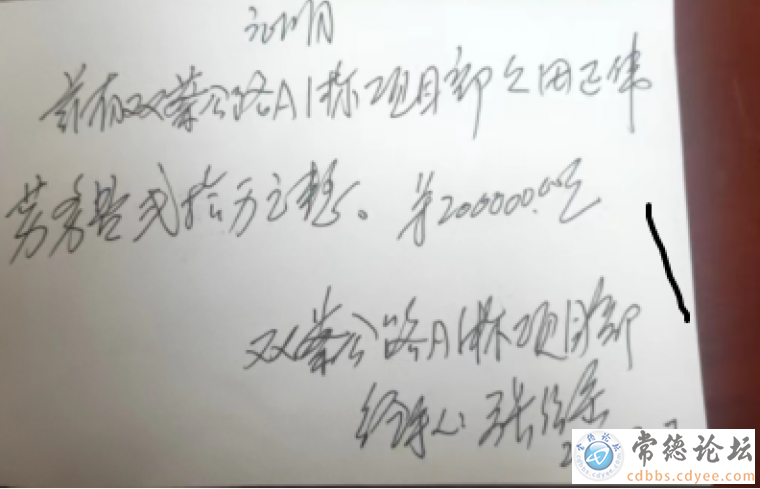 证明
兹有双蔡公路A1标项目部欠田卫伟
劳务费贰拾万元整。¥200000.00元
双蔡公路A1标项目部
经手人:张
常德论坛
cdbbs.cdyee.com